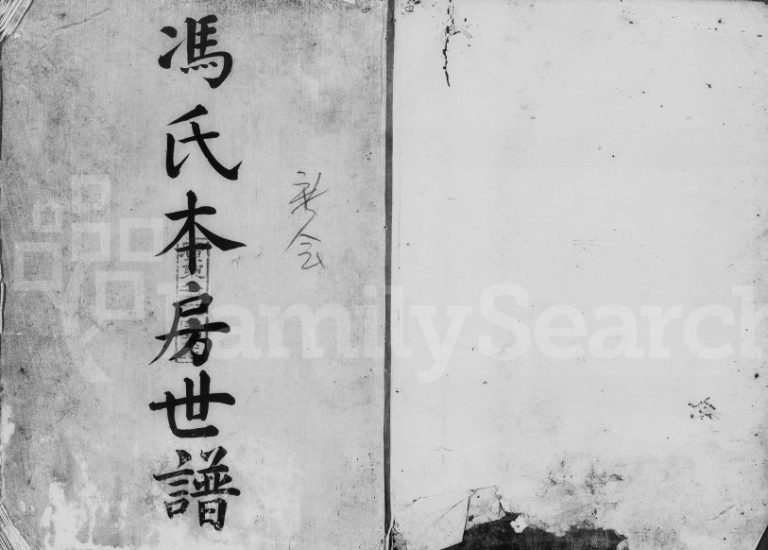 馮氏本房世譜
新会
FamilySearch